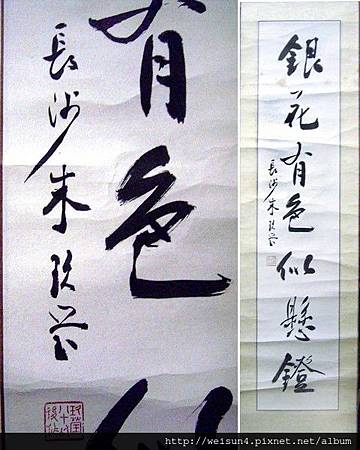 有色似
長沙朱玖瑩
銀花有色似懸鐙
長沙朱玖瑩
http://weisun4.pixnet.net/album